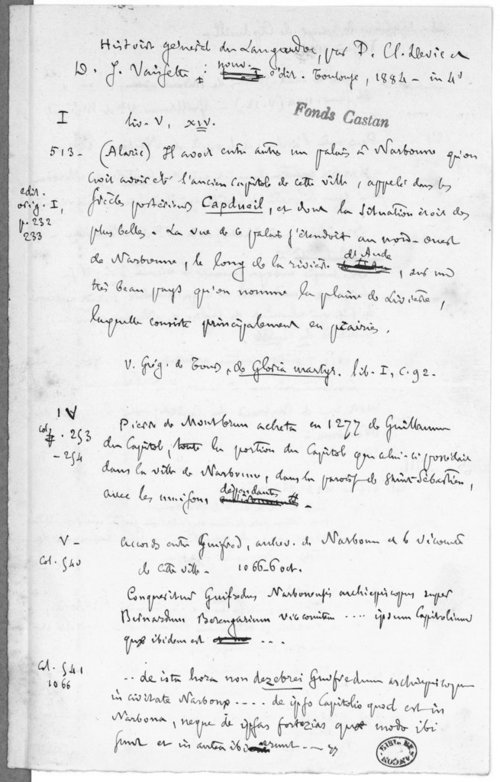 Histoire general du Languedoc, par D. Cl. Devic et
D. J. Vaissete : nouv. édit. Toulouse, 1884 - in 4°
Fonds Castan
I liv. V, XIV.
513 - (Alaric) Il avoit entre autres un palais à Narbonne qu'on
croit avoir été l'ancien Capitole de cette ville, appelé dans les
edit. orig. I, p. 232 233
siècles postérieurs Capdueil, et dont la situation étoit des
plus belles. La vue de ce palais s'étendoit au nord-ouest
de Narbonne, le long de la rivière d'Aude, sur un
très beau pays qu'on nomme la plaine de Livière,
laquelle consiste principalement en prairies.
V. Grég. de Tours, de Gloria martyr. lib. I, c. 92.
IV
col. 253 - 254
Pierre de Montbrun acheta en 1277 de Guillaume
du Capitol, toute la portion du Capitole que celui-ci possédait
dans la ville de Narbonne, dans la paroisse de Saint Sébastien,
avec les maisons dépendantes.
V - Accords entre Guifred, archev. de Narbonne et le vicomte
col. 540 de cette ville - 1066-6 oct.
Conqueritur Guifredus Narbonensis archiepiscopus super
Bernardum Berengarium vicecomitem .... ipsum Capitolium
quae ibidem est ....
col. 541
1066
... de ista hora non dezebrei Guifredum archiepiscopum
in civitate Narbona .... de ipso Capitolio quod est in
Narbona, neque de ipsas fortezias quae modo ibi
sunt et in antea ibi erunt ....